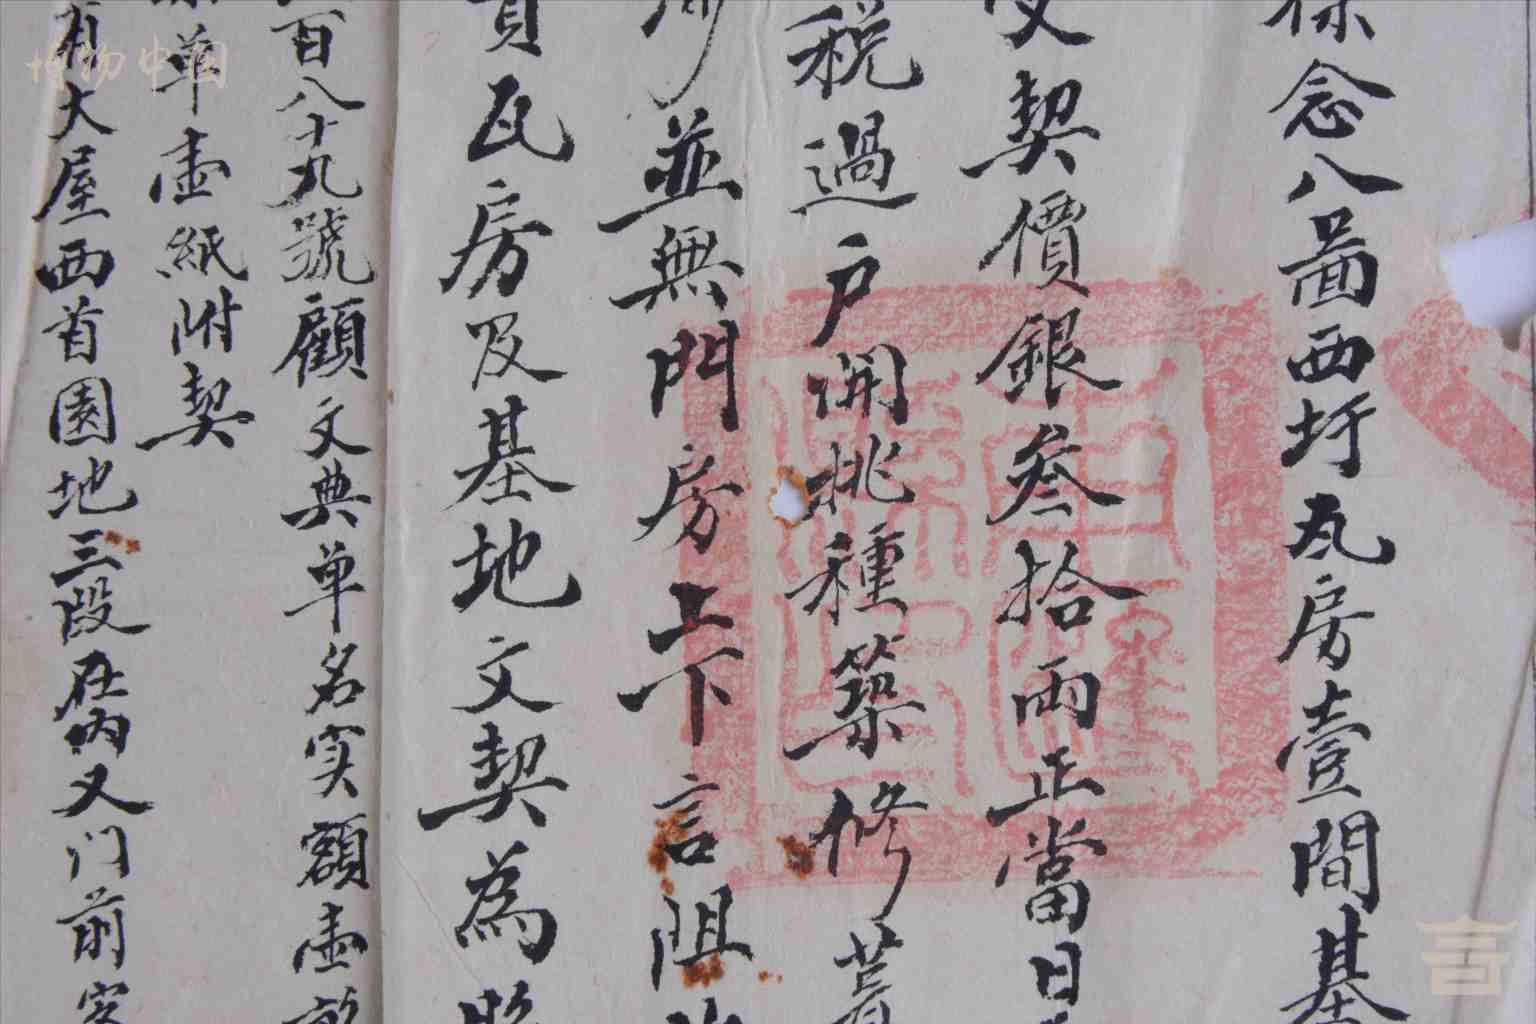 保念八啚西圩瓦房壹間基
契價銀叁拾兩正當日
税過户開挑種築修葺
並無門房上下言阻
賣瓦房及基地文契為照
百八十九號顧文典单名实額壶
单壶紙附契
有大屋西首園地三段在内又门前
博物中国